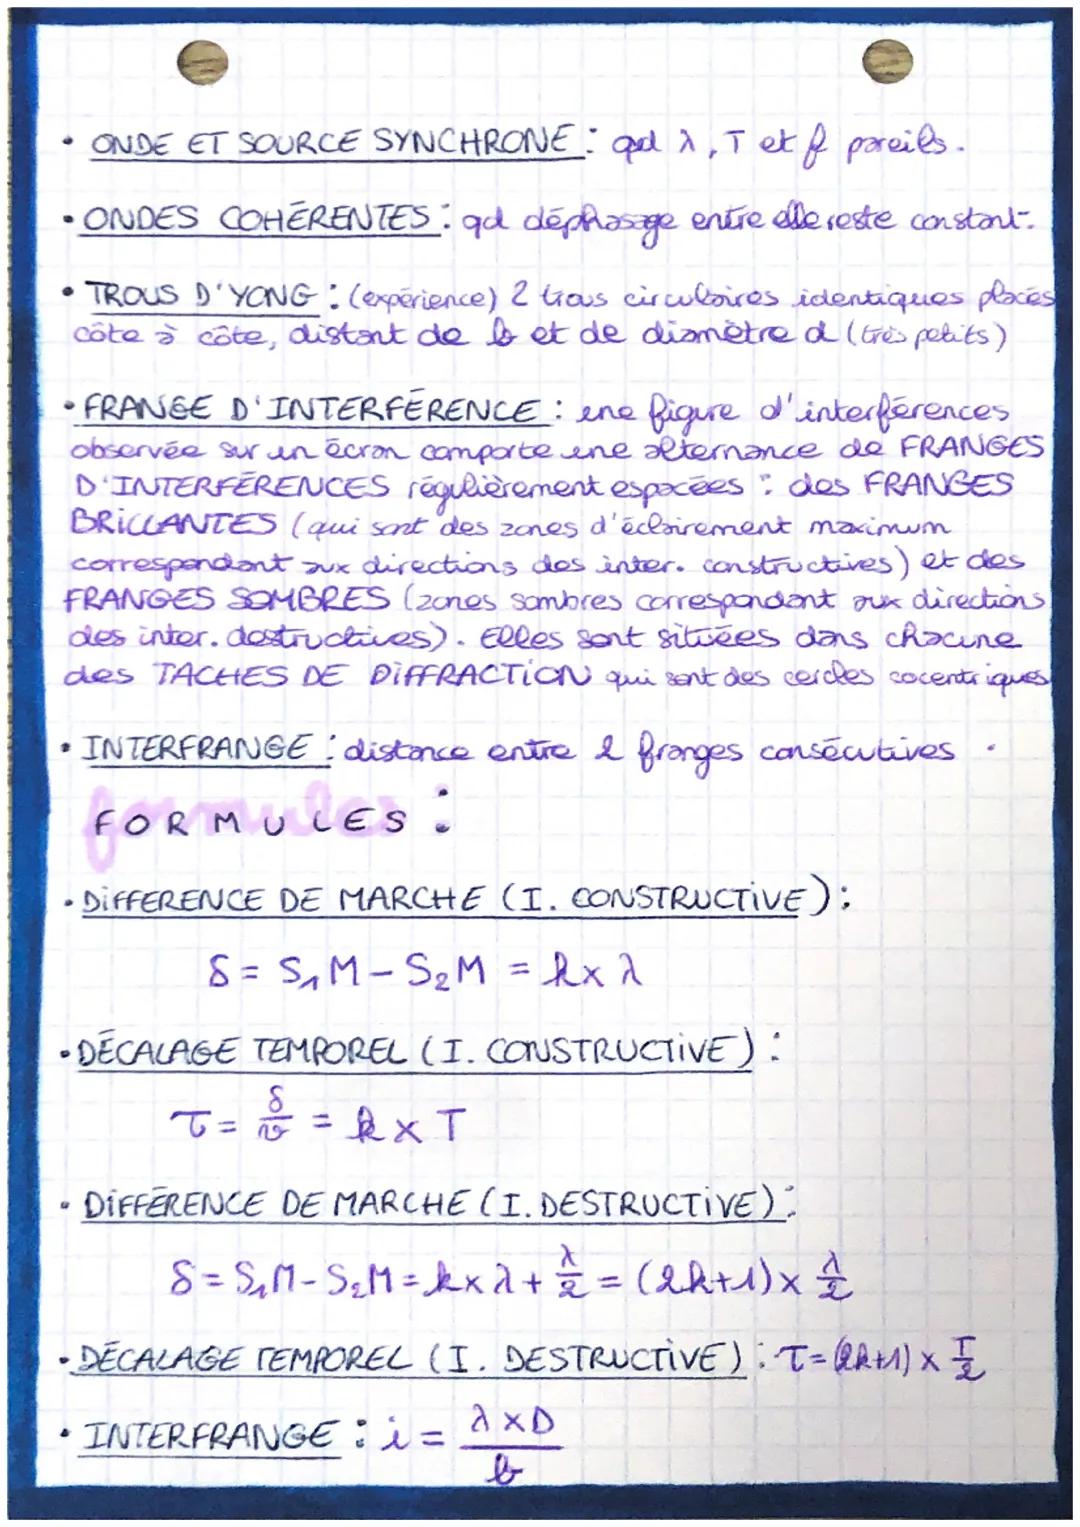 • ONDE ET SOURCE SYNCHRONE : qd λ, T et f pareils.
• ONDES COHÉRENTES : qd déphasage entre elle reste constant.
• TROUS D'YONG : (expérience) 2 trous circulaires identiques placés
côte à côte, distant de b et de diamètre d (très petits)
• FRANGE D'INTERFÉRENCE : une figure d'interférences
observée sur un écran comporte une alternance de FRANGES
D'INTERFÉRENCES régulièrement espacées : des FRANGES
BRILLANTES (qui sont des zones d'éclairement maximum
correspondant aux directions des inter. constructives) et des
FRANGES SOMBRES (zones sombres correspondant aux directions
des inter. destructives). Elles sont situées dans chacune
des TACHES DE DIFFRACTION qui sont des cercles cocentriques
• INTERFRANGE : distance entre 2 franges consécutives .
formules
FORMULES :
• DIFFERENCE DE MARCHE (I. CONSTRUCTIVE) :
δ = S₁M - S₂M = k x λ
• DÉCALAGE TEMPOREL (I. CONSTRUCTIVE) :
τ = δ/v = k x T
• DIFFÉRENCE DE MARCHE (I. DESTRUCTIVE) :
δ = S₁M - S₂M = k x λ + λ/2 = (2k+1) x λ/2
• DÉCALAGE TEMPOREL (I. DESTRUCTIVE) : τ = (2k+1) x T/2
• INTERFRANGE : i = λ x D / b